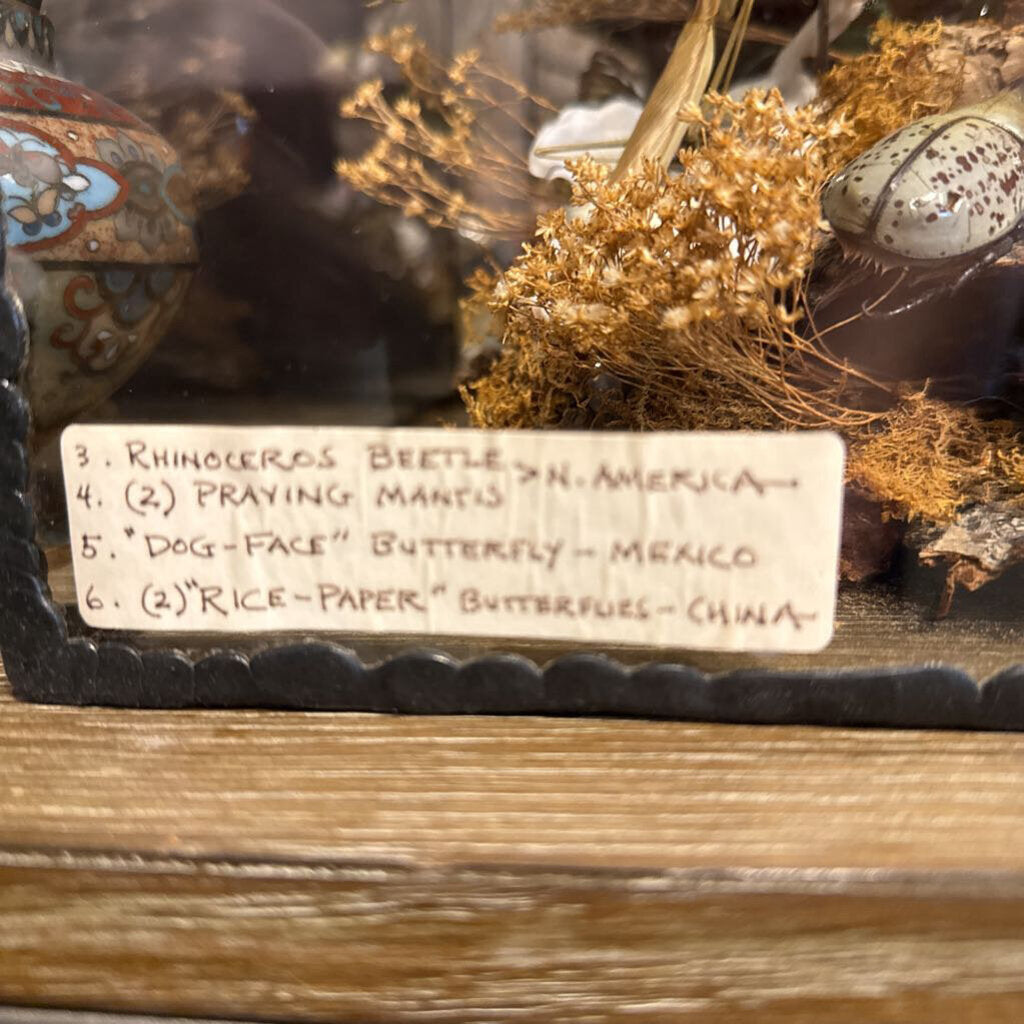 3. RHINOCEROS BEETLE > N. AMERICA
4. (2) PRAYING MANTIS
5. "DOG-FACE" BUTTERFLY - MEXICO
6. (2) "RICE-PAPER" BUTTERFLIES - CHINA